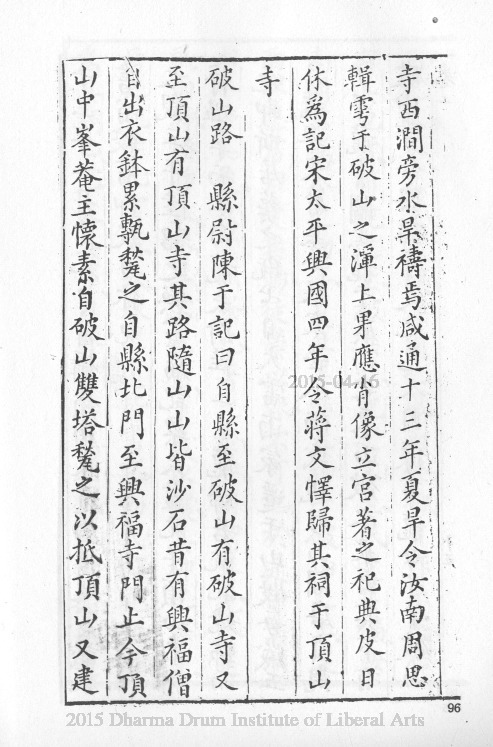 寺西澗旁水旱禱焉咸通十三年夏旱令汝南周思
輯雩于破山之潭上果應肖像立宫著之祀典皮日
休為記宋太平興國四年令蔣文懌歸其祠于頂山
寺
破山路　縣尉陳于記曰自縣至破山有破山寺又
至頂山有頂山寺其路隨山山皆沙石昔有興福僧
自出衣鉢累甎甃之自縣北門至興福寺門止今頂
山中峯菴主懷素自破山雙塔甃之以抵頂山又建
96
2015-04-16
2015 Dharma Drum Institute of Liberal Arts